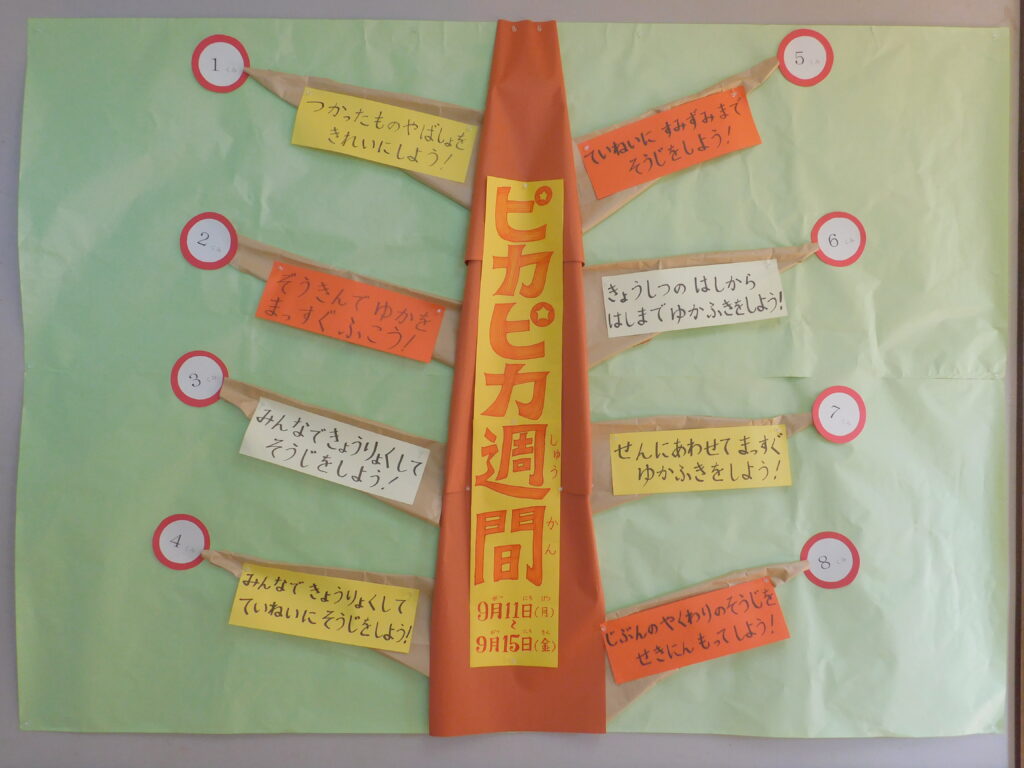 ピカピカ週間
しゅう
かん
9月11日(月)
がつ にち げつ
〜
9月15日(金)
がつ にち きん
1 くみ
つかったものやばしょを
きれいにしよう!
2 くみ
ぞうきんで ゆかを
まっすぐ ふこう!
3 くみ
みんなできょうりょくして
そうじをしよう!
4 くみ
みんなで きょうりょくして
ていねいに そうじをしよう!
5 くみ
ていねいに すみずみまで
そうじをしよう!
6 くみ
きょうしつの はしから
はしまで ゆかふきをしよう!
7 くみ
せんにあわせて まっすぐ
ゆかふきをしよう!
8 くみ
じぶんの やくわりの そうじを
せきにん もって しよう!